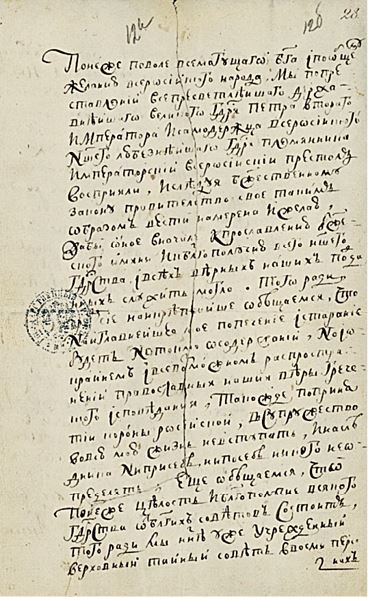 12и 12б 23
Понеже поволе всемогущаго бга ипообще
желанию всеросиского народа, Мы попре
ставлении всепресветлейшаго держа
внейшаго великого гдря Петра втораго
Императора исамодержца всеросиского
Ншего любезнейшаго гдря племянника
императорский всеросиский престолъ
восприяли, иследуя бжественному
закону правительство свое такимъ
образомъ вести намерена ижелаю,
дабы оное вначале кпрославлению бже
ского имяни икблагополучию всего ншего
гдрства ивсѣхъ вѣрныхъ нашихъ подда
нныхъ служить могло. Того ради,
сие наикрѣпчайше обещаемся, что
наиглавнейшее мое попечение истарание
будетъ нетокмо осодержании, ноио
крайнемъ ивсевозможномъ распростра
нении православныя нашия вѣры грече
ского исповедания, такожде поприня
тии короны росиской, всупружество
вовсю мою жизнь невступать, инаслѣ
дниканиприсебѣ, нипосебѣ никого нео
пределять. Еще обещаемся, что
понеже цѣлость иблагополучие всякого
гдрства отблагихъ совѣтовъ состоитъ,
того ради мы нне уже учрежденный
верховный тайный совѣтъ восми пер
нахъ